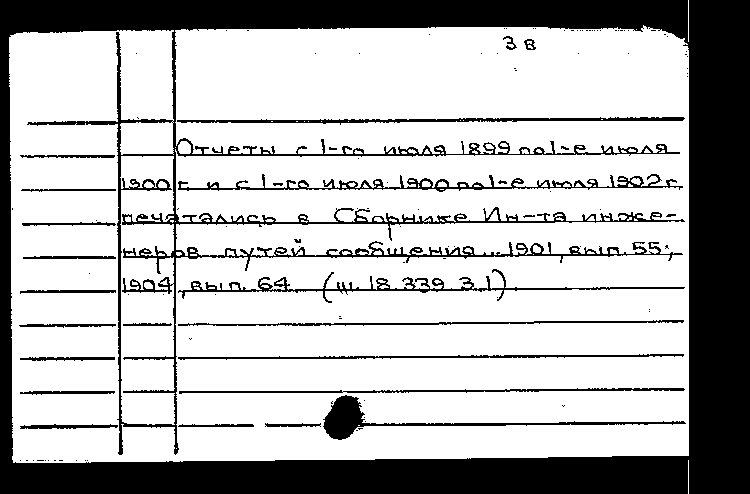 3 в
Отчеты с 1-го июля 1899 по 1-е июля
1900 г. и с 1-го июля 1900 по 1-е июля 1902 г.
печатались в Сборнике Ин-та инже-
неров путей сообщения... 1901, вып. 55;
1904, вып. 64. (Ш. 18.339.3.1).